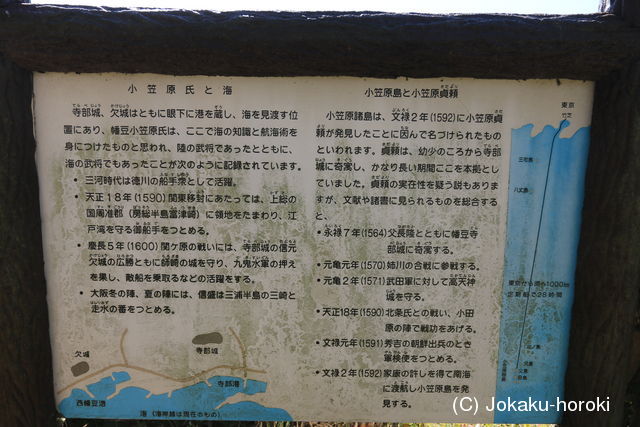 小笠原氏と海
寺部城、欠城はともに眼下に港を蔵し、海を見渡す位
置にあり、幡豆小笠原氏は、ここで海の知識と航海術を
身につけたものと思われ、陸の武将であったとともに、
海の武将でもあったことが次のように記録されています。
・三河時代は徳川の船手衆として活躍。
・天正18年(1590)関東移封にあたっては、上総の
国周准郡(房総半島富津崎)に領地をたまわり、江
戸湾を守る御船手をつとめる。
・慶長5年(1600)関ケ原の戦いには、寺部城の信元
欠城の広勝ともに師崎の城を守り、九鬼水軍の押え
を果し、敵船を乗取るなどの活躍をする。
・大阪冬の陣、夏の陣には、信盛は三浦半島の三崎と
走水の番をつとめる。
欠城
寺部城
寺部港
西幡豆港
海(海岸線は現在のもの)
小笠原島と小笠原貞頼
小笠原諸島は、文禄2年(1592)に小笠原貞
頼が発見したことに因んで名づけられたもの
といわれます。貞頼は、幼少のころから寺部
城に寄寓し、かなり長い期間ここを本拠とし
ていました。貞頼の実在性を疑う説もあります
が、文献や諸書に見られるものを総合する
と、
・永禄7年(1564)父長隆とともに幡豆寺
部城に寄寓する。
・元亀元年(1570)姉川の合戦に参戦する。
・元亀2年(1571)武田軍に対して高天神
城を守る。
・天正18年(1590)北条氏との戦い、小田
原の陣で戦功をあげる。
・文禄元年(1591)秀吉の朝鮮出兵のとき
軍検使をつとめる。
・文禄2年(1592)家康の許しを得て南海
に渡航し小笠原島を発
見する。
東京
竹芝
三宅島
八丈島
東京から約1000km
定期船で28時間
父島
母島
(C) Jokaku-horoki